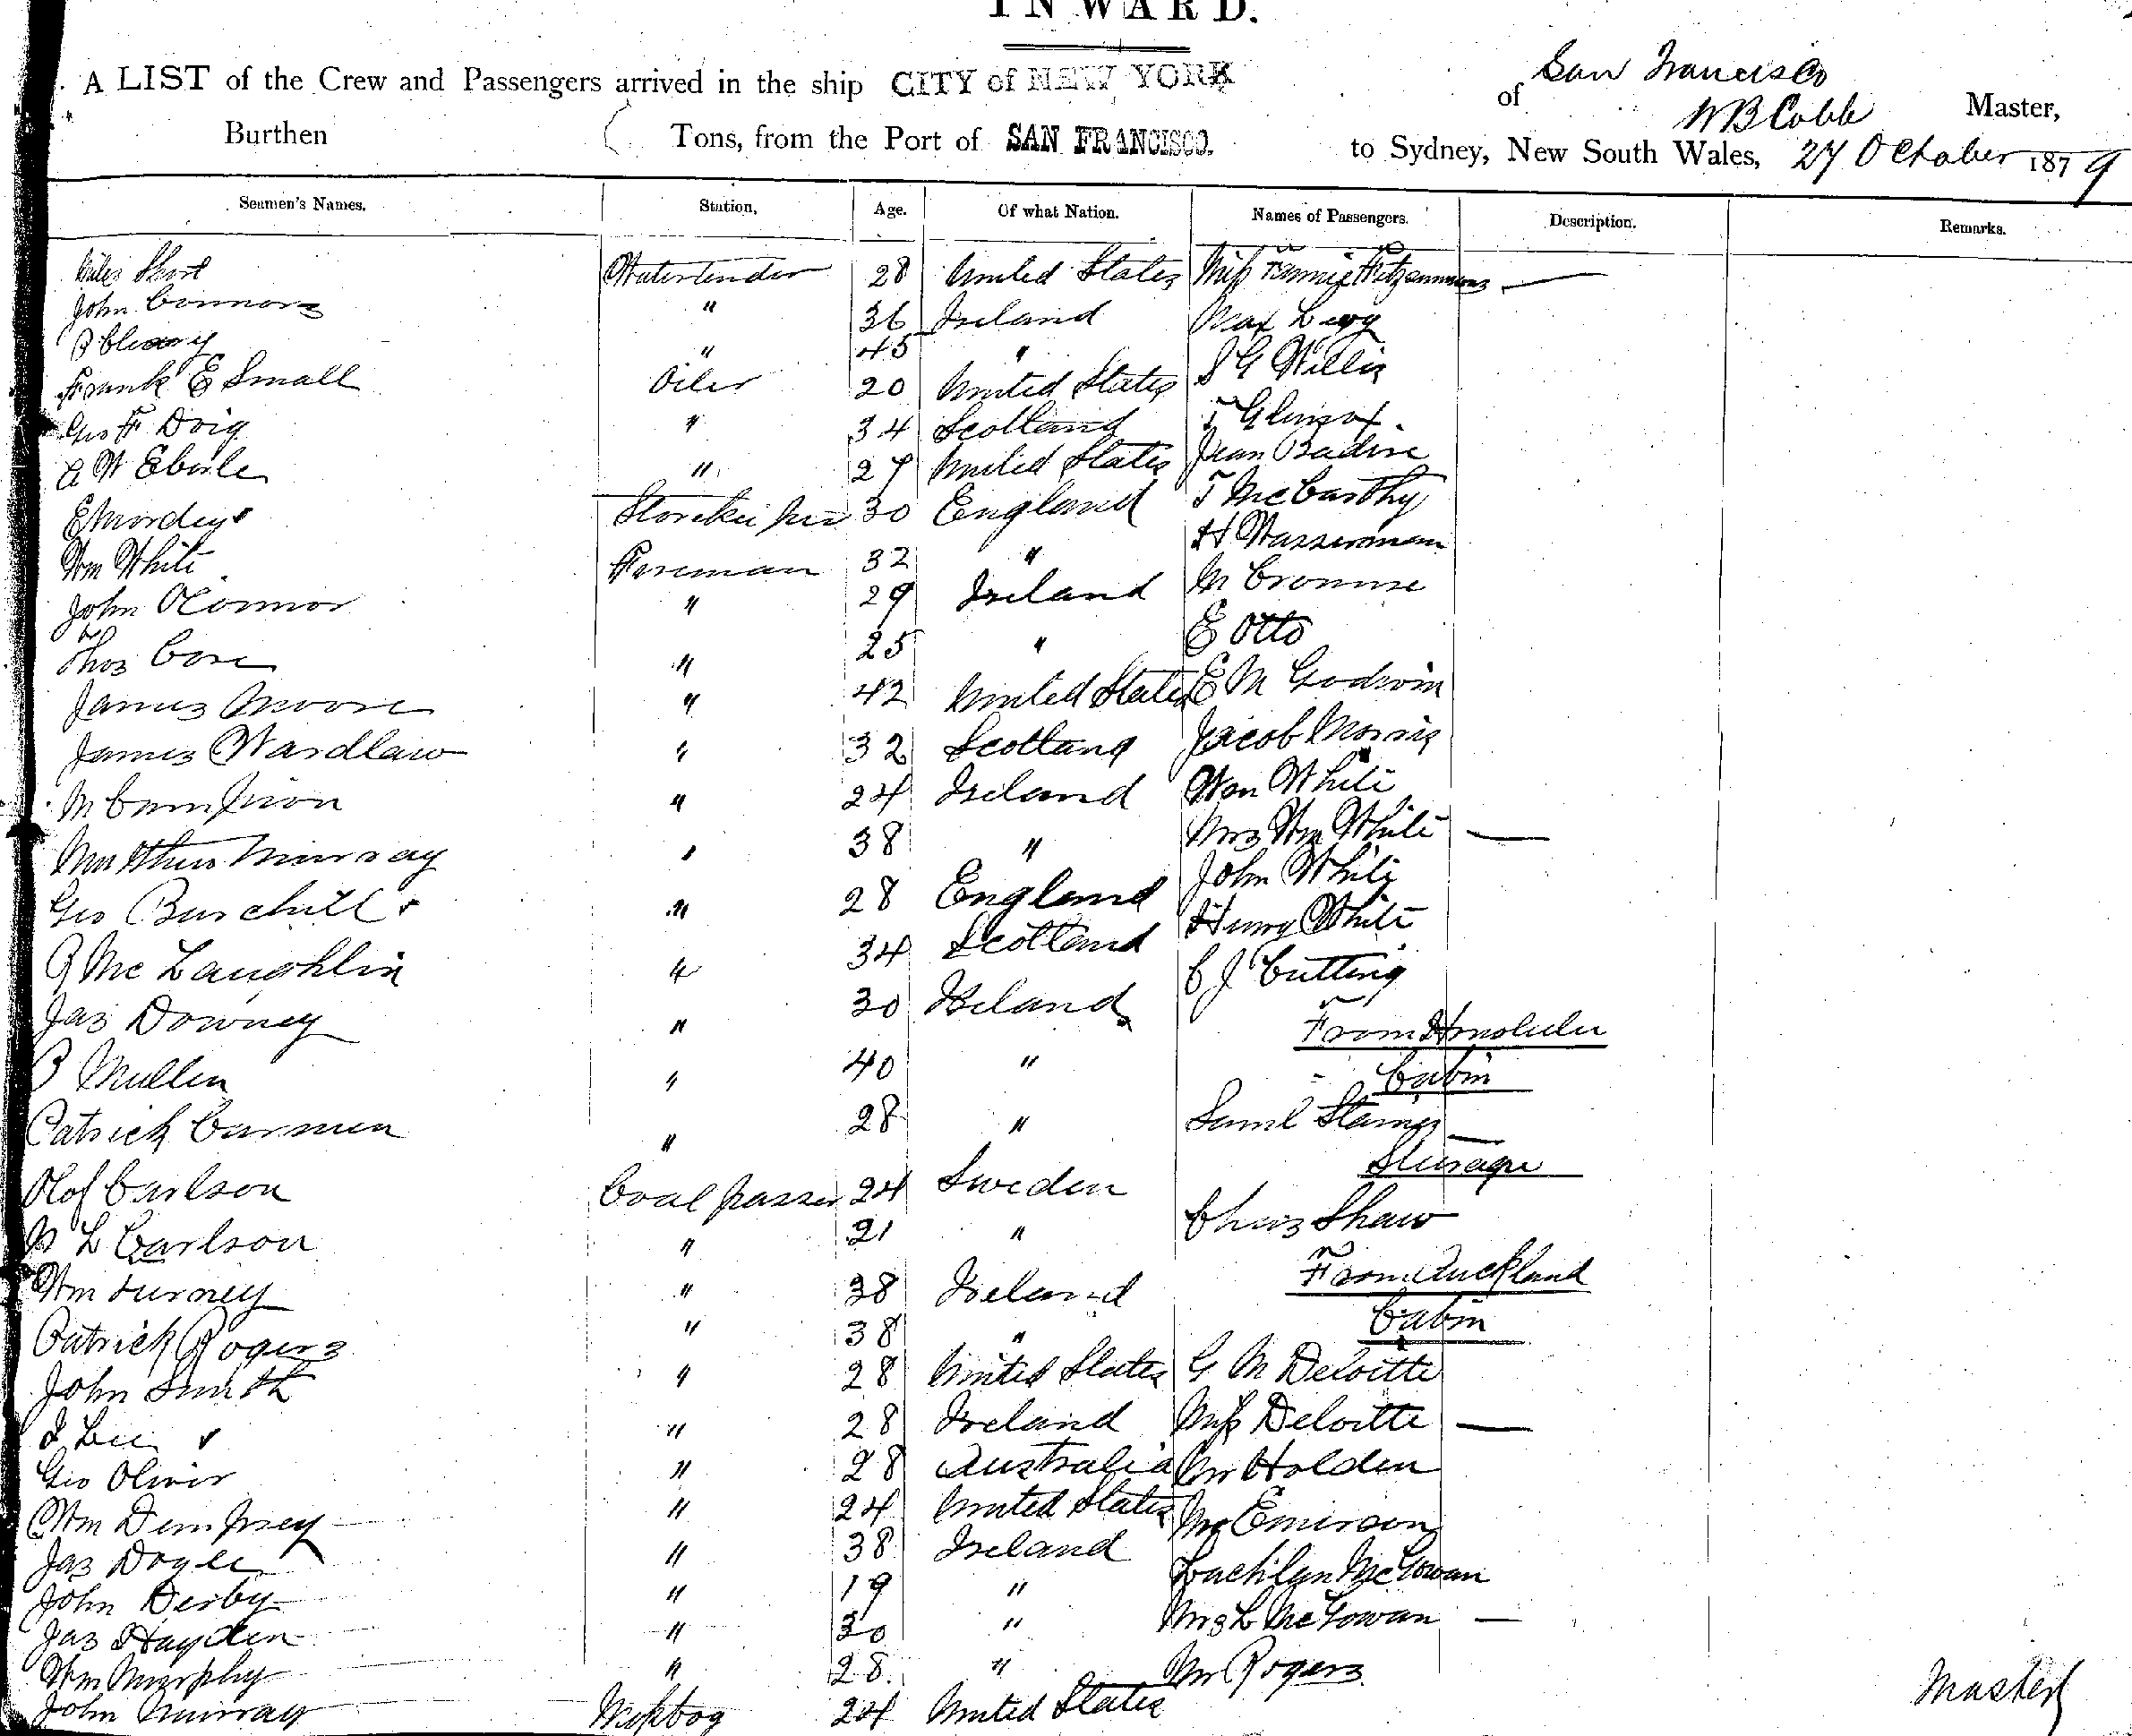 INWARD.
A LIST of the Crew and Passengers arrived in the ship CITY of NEW YORK of San Francisco
Burthen Tons, from the Port of SAN FRANCISCO. WB Cobb Master,
to Sydney, New South Wales, 27 October 1879
Seamen's Names. Station, Age. Of what Nation. Names of Passengers. Description. Remarks.
Short Watertender 28 United States Miss Fannie Fitzsimmons —
John Connors " 36 Ireland Max Levy
45 " S G Willis
Frank E Small Oiler 20 United States T
Geo F Doig " 34 Scotland Jean
A W Eberle " 27 United States T McCarthy
Storekeeper 30 England H Wasserman
Wm White Fireman 32 " M
John OConnor " 29 Ireland E Otto
Thos " 25 " E M Godwin
James Moore " 42 United States Jacob Morris
James Wardlaw " 32 Scotland Wm White
M Campion " 24 Ireland Mrs Wm White —
Matthew Murray " 38 " John White
Geo Burchill " 28 England Henry White
McLaughlin " 34 Scotland C J Cutting
Jas Downey " 30 Ireland From Honolulu
Mullen " 40 " Cabin
Patrick Carmen " 28 " Saml —
Steerage
Olof Carlson Coal passer 24 Sweden Chas Shaw
L Carlson " 21 "
Wm " 38 Ireland From Auckland
Patrick Rogers " 38 " Cabin
John Smith " 28 United States G M Deloitte
Lee " 28 Ireland Miss Deloitte —
Geo Oliver " 28 Australia Mr Holden
Wm Dempsey " 24 United States Mr Emerson
Jas Doyle " 38 Ireland Lachlan McGowan
John Derby " 19 " Mrs L McGowan —
Jas Hayden " 30 " Mr Rogers
Wm Murphy " 28 "
John Murray 24 United States
Master